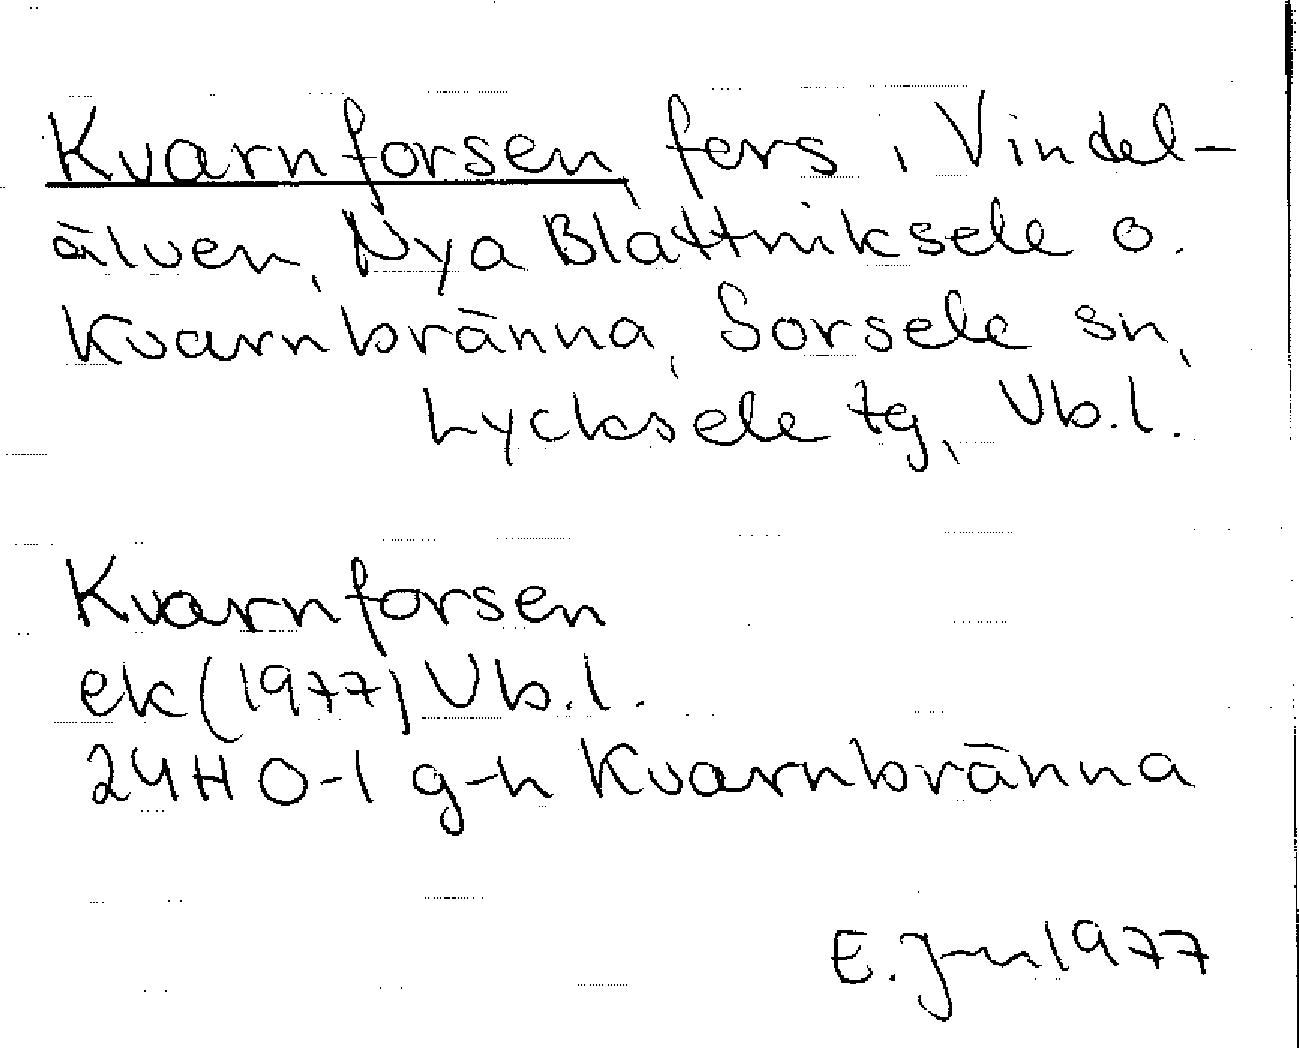 Kvarnforsen, fors i Vindel-
älven, Nya Blattniksele o.
Kvarnbränna, Sorsele sn,
Lycksele tg, Vb.l.
Kvarnforsen
ek (1977) Vb.l.
24H 0-1 g-h Kvarnbränna
E. 1977